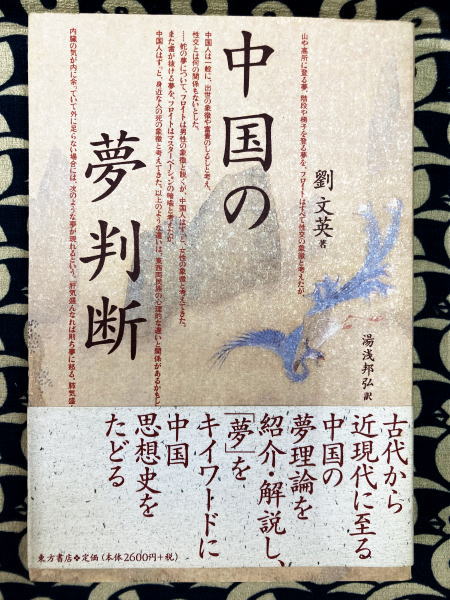 山や高所に登る夢、階段や梯子を登る夢を、フロイトはすべて性交の象徴と考えたが、
中国人は一般に、出世の象徴や富貴のしるしと考え、
性交とは何の関係もないとした。
……蛇の夢について、フロイトは男性の象徴と説くが、中国人はずっと、女性の象徴と考えてきた。
また歯が抜ける夢を、フロイトはマスターベーションの暗喩と考えたが、
中国人はずっと、身近な人の死の象徴と考えてきた。以上のような違いは、東西両民族の心理的な違いと関係があるかもし
内臓の気が内に余っていて外に足らない場合には、次のような夢が現れるという。肝気盛んなれば則ち夢に怒る、肺気盛
中国の
夢判断
劉文英 著
湯浅邦弘 訳
古代から
近現代に至る
中国の
夢理論を
紹介・解説し、
「夢」を
キイワードに
中国
思想史を
たどる
東方書店❖定価(本体2600円+税)